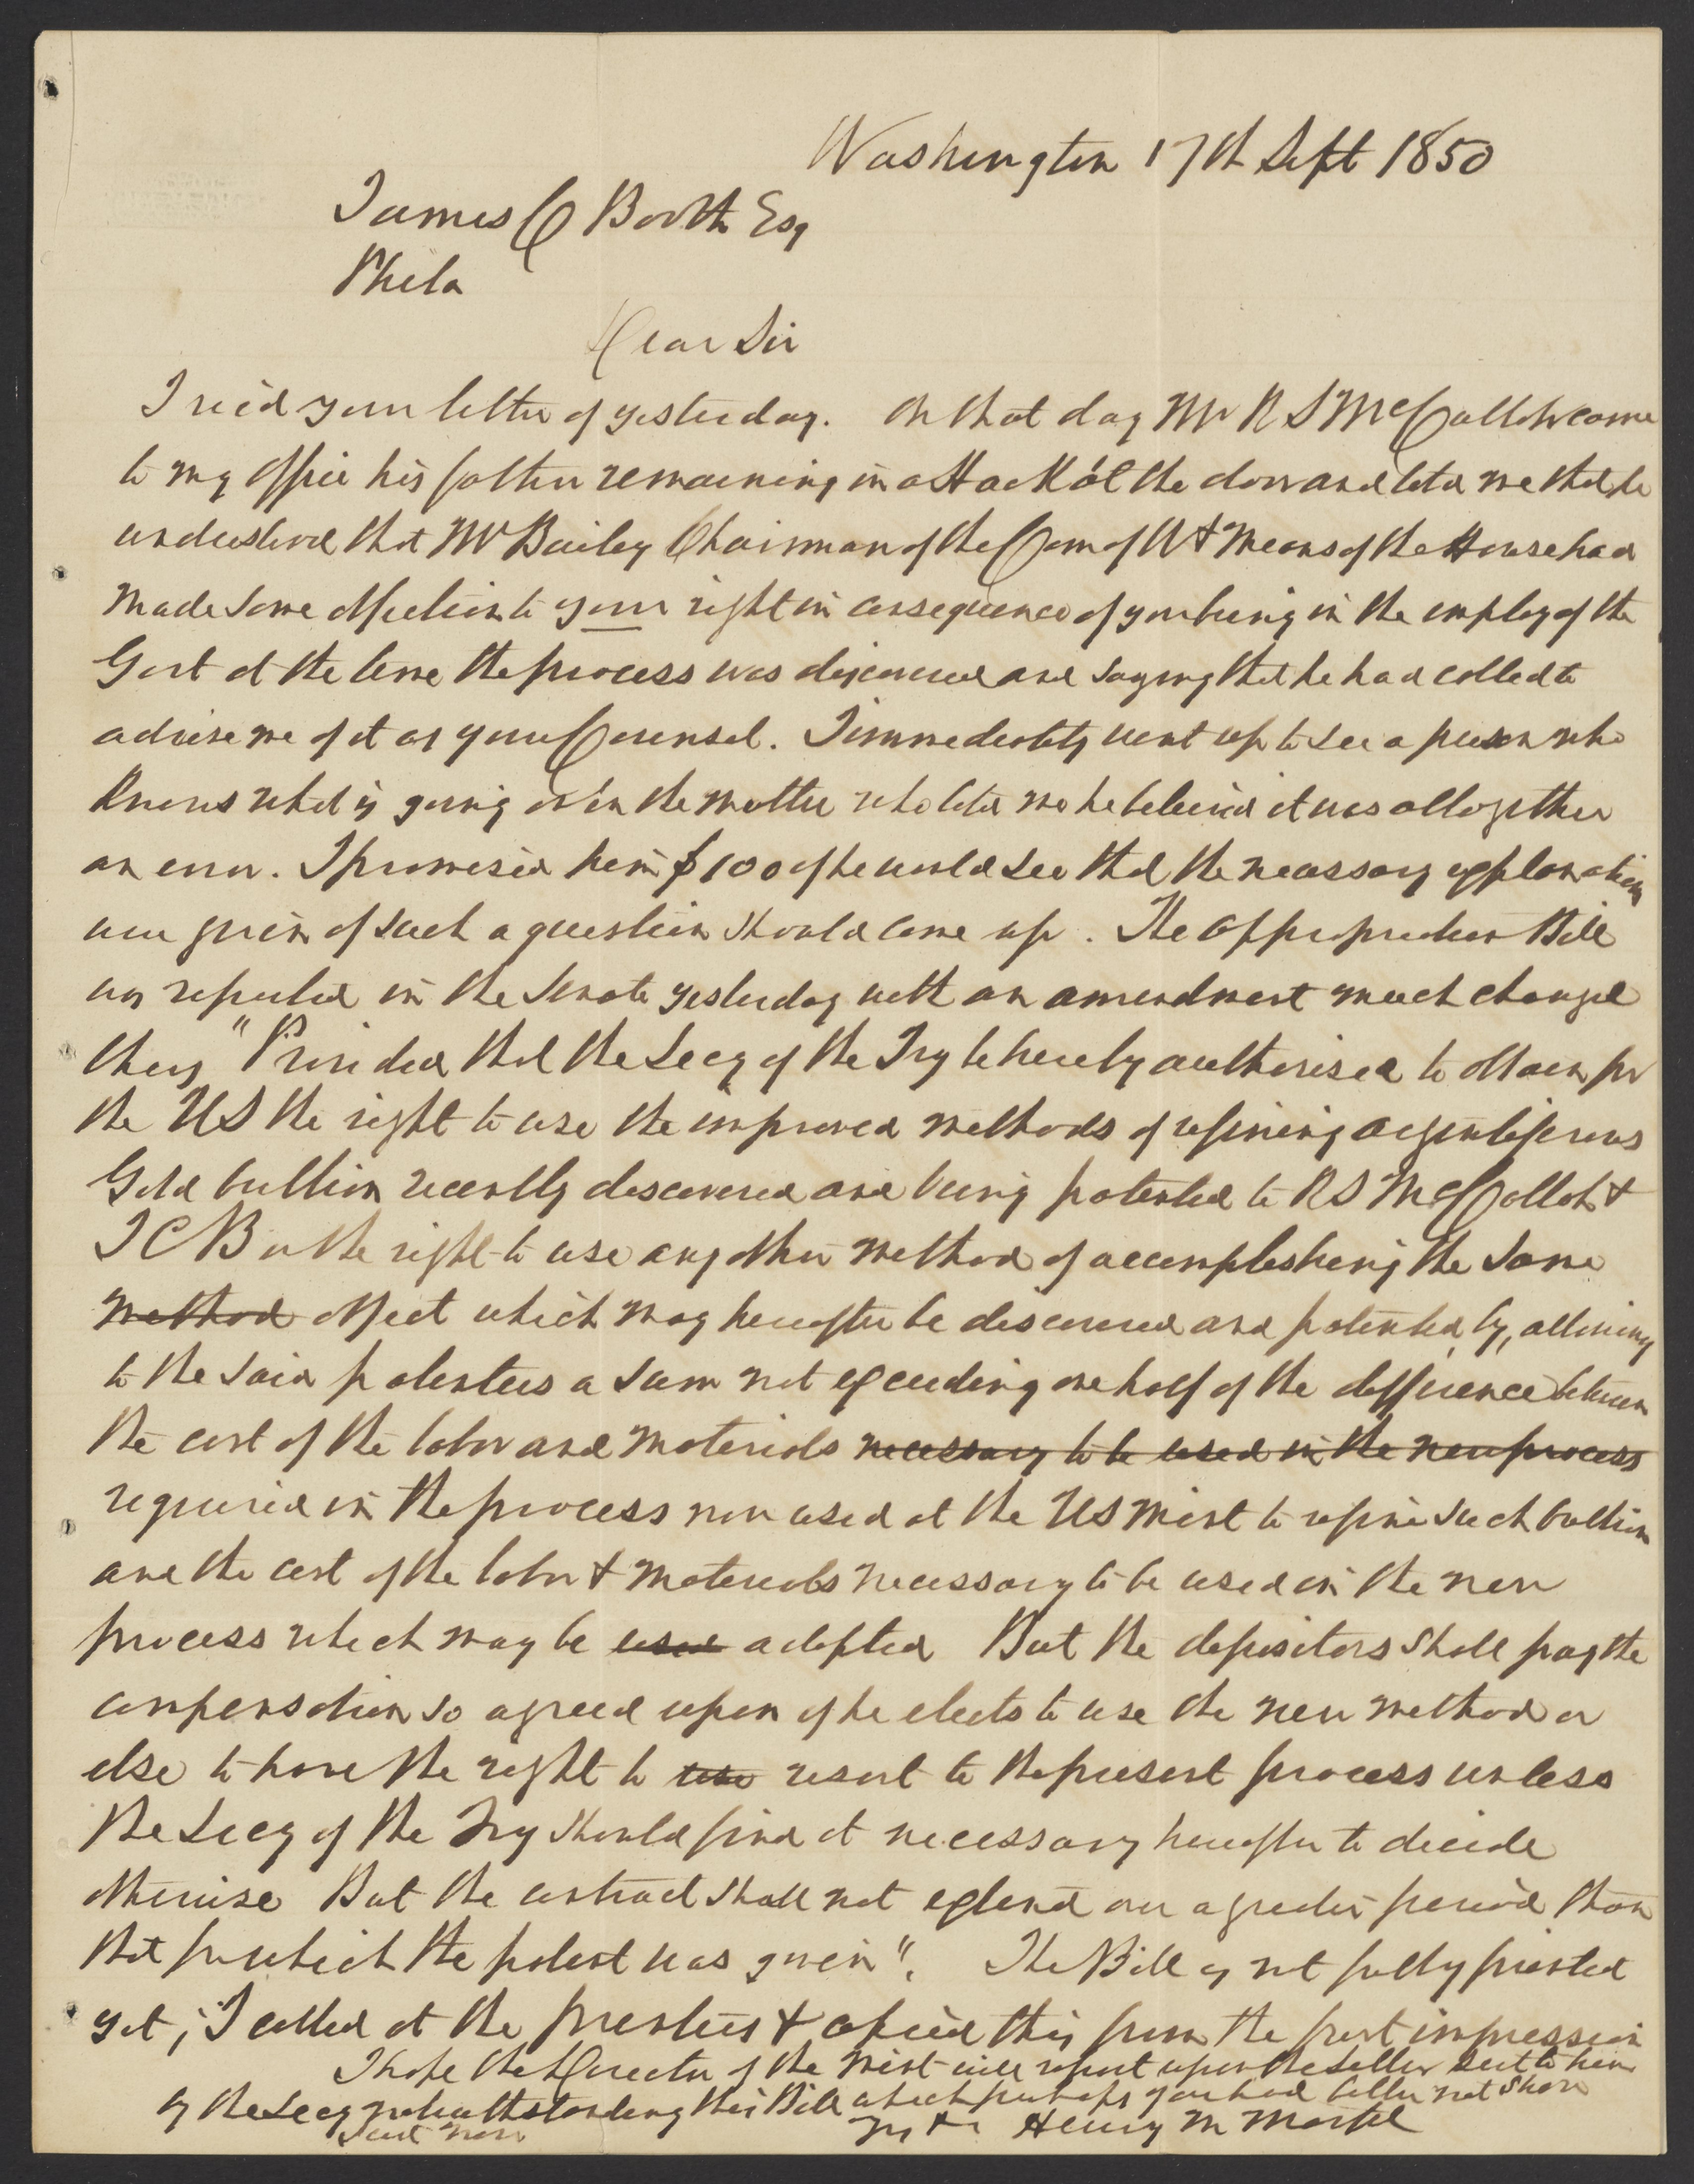 Washington 17th Sept 1850
James C Booth Esq
Phila
Dear Sir
I recd your letter of yesterday. On that day Mr R S McCulloh came
to my office his father remaining in a Hack at the door and told me that he
understood that Mr Bailey Chairman of the Com of W & Means of the House had
made some objection to your right in consequence of your being in the employ of the
Govt at the time the process was discovered and saying that he had called to
advise me of it as your Counsel. I immediately went up to see a person who
knows what is going on in the matter who told me he believed it was altogether
an error. I promised him $100 if he would see that the necessary explanations
were given if such a question should come up. The Appropriation Bill
was reported in the Senate yesterday with an amendment much changed
thus "Provided that the Secy of the Try be hereby authorised to obtain for
the US the right to use the improved methods of refining argentiferous
Gold bullion recently discovered and being patented to R S McCulloh &
J C B or the right to use any other method of accomplishing the same
method object which may hereafter be discovered and patented, by, allowing
to the said patentees a sum not exceeding one half of the difference between
the cost of the labor and materials necessary to be used in the new process
required in the process now used at the US Mint to refine such bullion
and the cost of the labor & materials necessary to be used in the new
process which may be used adopted But the depositors shall pay the
compensation so agreed upon if he elects to use the new method or
else to have the right to use resort to the present process unless
the Secy of the Try should find it necessary hereafter to decide
otherwise But the contract shall not extend over a greater period than
that for which the patent was given". The Bill is not fully printed
yet; I called at the printers & copied this from the first impression
I hope the Director of the Mint will report upon the letter sent to him
by the Secy notwithstanding this Bill which perhaps you had better not show
just now
Henry M Morfit